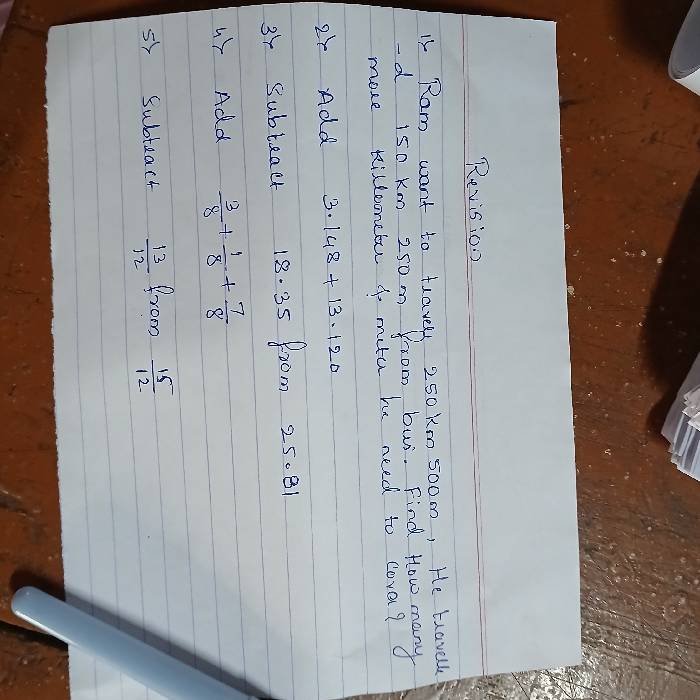 Revision
1) Ram want to travell 250 Km 500m, He travell
-d 150 Km 250 m from bus. Find How many
more killometer & meter he need to cover?
2) Add 3.148 + 13.120
3) Subtract 18.35 from 25.81
4) Add 3/8 + 1/8 + 7/8
5) Subtract 13/12 from 15/12